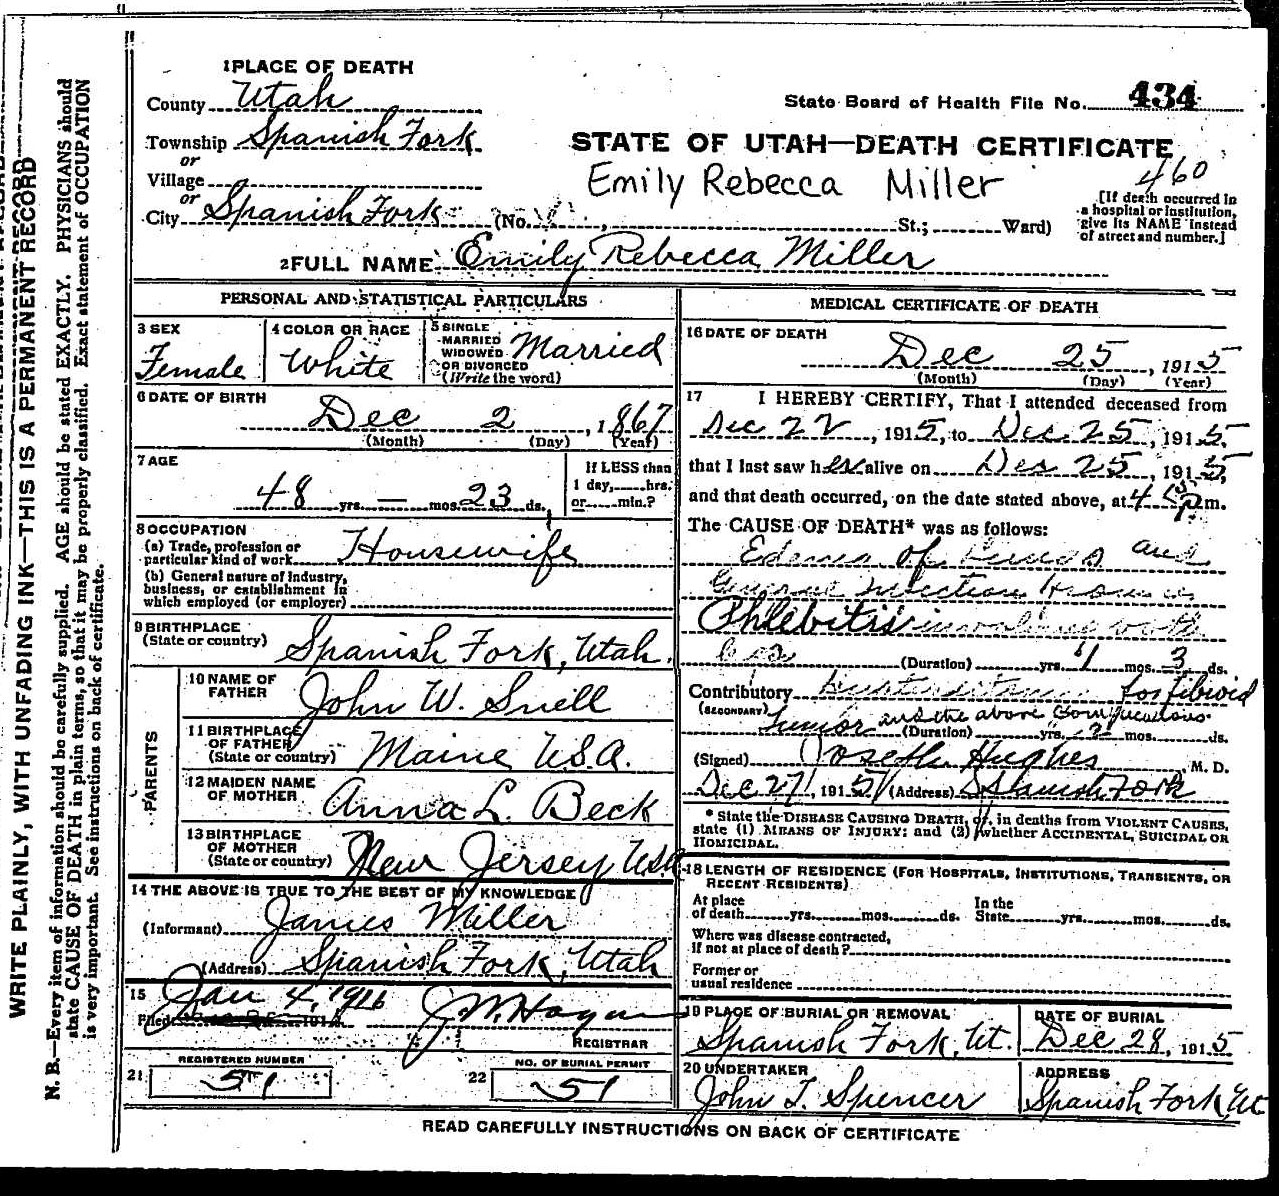 1 PLACE OF DEATH
County Utah
Township Spanish Fork
or
Village
or
City Spanish Fork (No. , St.; Ward)
State Board of Health File No. 434
STATE OF UTAH—DEATH CERTIFICATE
Emily Rebecca Miller
460
[If death occurred in
a hospital or institution,
give its NAME instead
of street and number.]
2 FULL NAME Emily Rebecca Miller
PERSONAL AND STATISTICAL PARTICULARS
3 SEX
Female
4 COLOR OR RACE
White
5 SINGLE
MARRIED
WIDOWED
OR DIVORCED
(Write the word)
Married
6 DATE OF BIRTH
Dec 2, 1867
(Month) (Day) (Year)
7 AGE
48 yrs. — mos. 23 ds.
If LESS than
1 day, hrs.
or min.?
8 OCCUPATION
(a) Trade, profession or
particular kind of work Housewife
(b) General nature of Industry,
business, or establishment in
which employed (or employer)
9 BIRTHPLACE
(State or country) Spanish Fork, Utah.
PARENTS
10 NAME OF
FATHER John W. Snell
11 BIRTHPLACE
OF FATHER
(State or country) Maine U.S.A.
12 MAIDEN NAME
OF MOTHER Anna L. Beck
13 BIRTHPLACE
OF MOTHER
(State or country) New Jersey USA
14 THE ABOVE IS TRUE TO THE BEST OF MY KNOWLEDGE
(Informant) James Miller
(Address) Spanish Fork, Utah
15 Jan 4, 1916
Filed 191
REGISTRAR
REGISTERED NUMBER
21 51
NO. OF BURIAL PERMIT
22 51
MEDICAL CERTIFICATE OF DEATH
16 DATE OF DEATH
Dec 25, 1915
(Month) (Day) (Year)
17 I HEREBY CERTIFY, That I attended deceased from
Dec 22, 1915, to Dec. 25, 1915,
that I last saw her alive on Dec 25, 1915,
and that death occurred, on the date stated above, at 4 p m.
The CAUSE OF DEATH* was as follows:
Edema of Lungs and
General infection from a
Phlebitis involving both
legs (Duration) yrs. 1 mos. 3 ds.
Contributory for fibroid
(SECONDARY)
Tumor and the above Complications
(Duration) yrs. 2 mos. ds.
(Signed) Joseph Hughes M. D.
Dec 27, 1915 (Address) Spanish Fork
* State the DISEASE CAUSING DEATH, or, in deaths from VIOLENT CAUSES,
state (1) MEANS OF INJURY: and (2) whether ACCIDENTAL, SUICIDAL OR
HOMICIDAL.
18 LENGTH OF RESIDENCE (FOR HOSPITALS, INSTITUTIONS, TRANSIENTS, OR
RECENT RESIDENTS)
At place
of death yrs. mos. ds.
In the
State yrs. mos. ds.
Where was disease contracted,
if not at place of death?
Former or
usual residence
19 PLACE OF BURIAL OR REMOVAL
Spanish Fork, Ut.
DATE OF BURIAL
Dec 28, 1915
20 UNDERTAKER
John T. Spencer
ADDRESS
Spanish Fork, Ut
READ CAREFULLY INSTRUCTIONS ON BACK OF CERTIFICATE
WRITE PLAINLY, WITH UNFADING INK—THIS IS A PERMANENT RECORD
N. B.—Every item of information should be carefully supplied. AGE should be stated EXACTLY. PHYSICIANS should
state CAUSE OF DEATH in plain terms, so that it may be properly classified. Exact statement of OCCUPATION
is very important. See instructions on back of certificate.